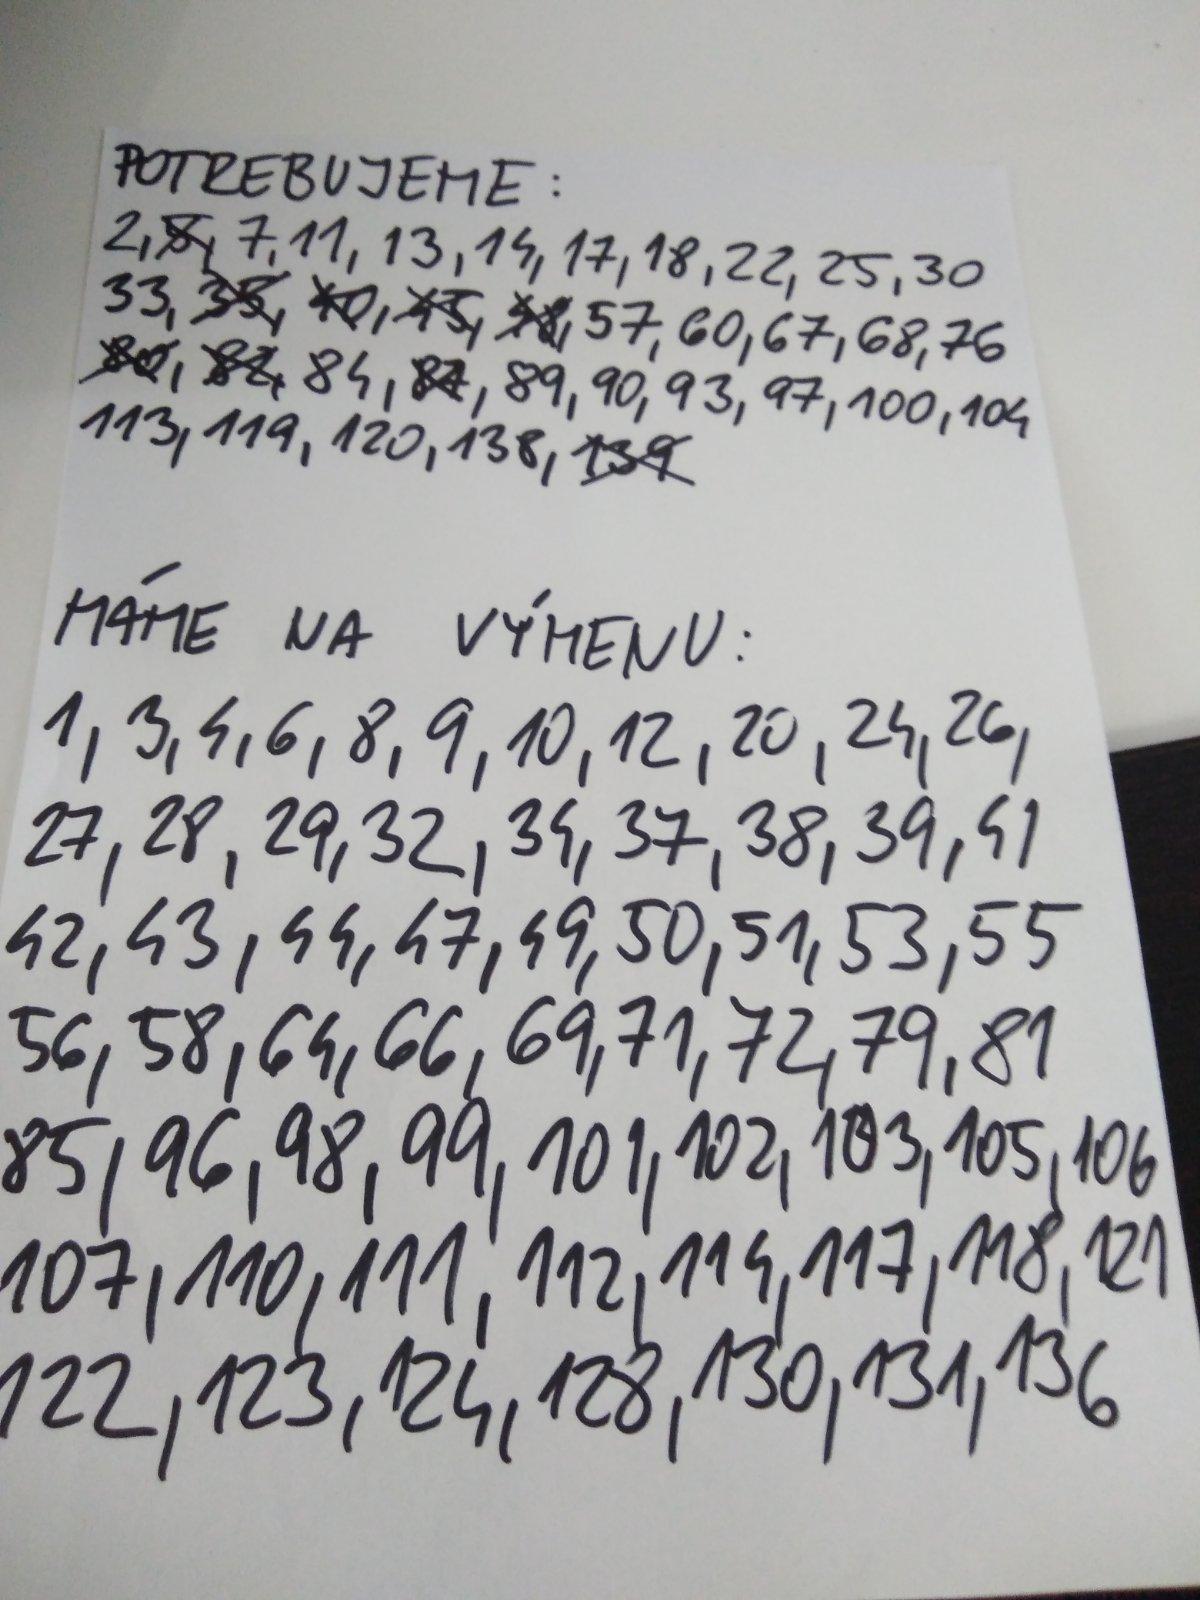 POTREBUJEME:
2, 7, 11, 13, 14, 17, 18, 22, 25, 30
33, 35, 40, 45, 48, 57, 60, 67, 68, 76
80, 82, 84, 87, 89, 90, 93, 97, 100, 104
113, 119, 120, 138, 139
MÁME NA VÝMENU:
1, 3, 4, 6, 8, 9, 10, 12, 20, 24, 26,
27, 28, 29, 32, 34, 37, 38, 39, 41
42, 43, 44, 47, 49, 50, 51, 53, 55
56, 58, 64, 66, 69, 71, 72, 79, 81
85, 96, 98, 99, 101, 102, 103, 105, 106
107, 110, 111, 112, 114, 117, 118, 121
122, 123, 124, 128, 130, 131, 136